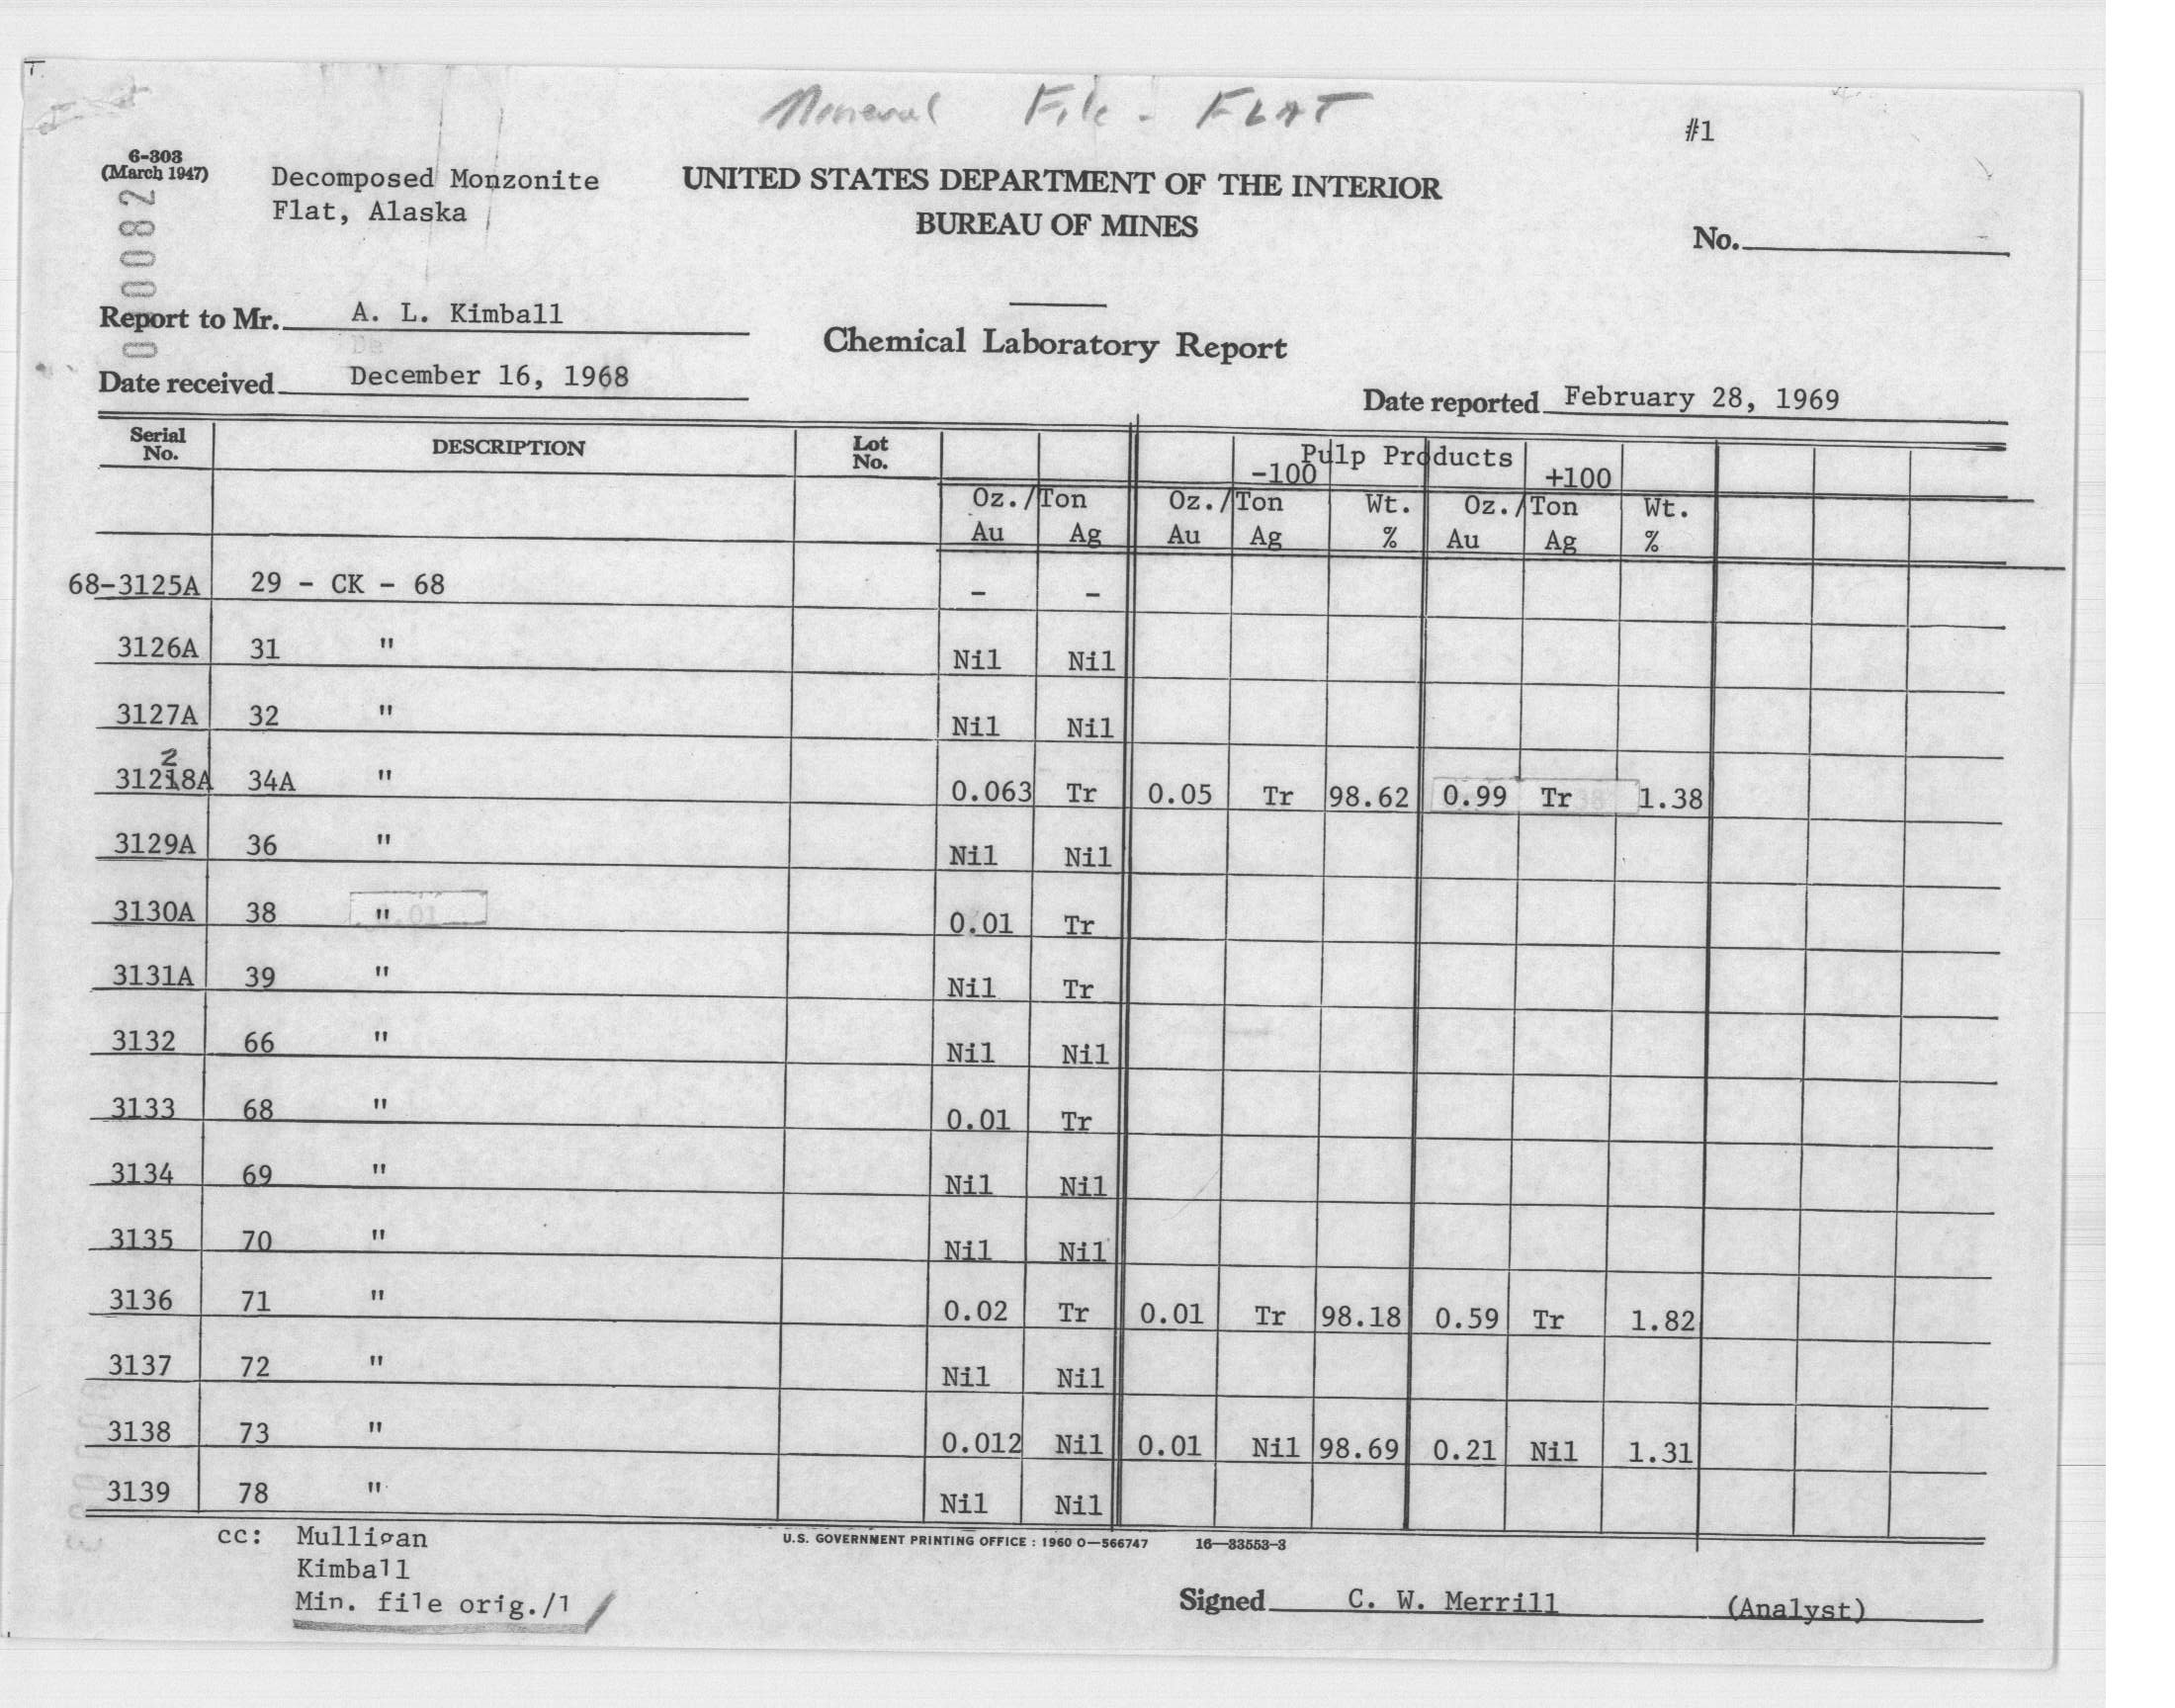 Mineral File - FLAT
#1
6-303
(March 1947)
Decomposed Monzonite
Flat, Alaska
UNITED STATES DEPARTMENT OF THE INTERIOR
BUREAU OF MINES
No.
Report to Mr. A. L. Kimball
Chemical Laboratory Report
Date received December 16, 1968
Date reported February 28, 1969
Serial No. DESCRIPTION Lot No. Pulp Products
-100 +100
Oz./Ton Oz./Ton Wt. Oz./Ton Wt.
Au Ag Au Ag % Au Ag %
68-3125A 29 - CK - 68 - -
3126A 31 " Nil Nil
3127A 32 " Nil Nil
2
31218A 34A " 0.063 Tr 0.05 Tr 98.62 0.99 Tr 1.38
3129A 36 " Nil Nil
3130A 38 " 0.01 Tr
3131A 39 " Nil Tr
3132 66 " Nil Nil
3133 68 " 0.01 Tr
3134 69 " Nil Nil
3135 70 " Nil Nil
3136 71 " 0.02 Tr 0.01 Tr 98.18 0.59 Tr 1.82
3137 72 " Nil Nil
3138 73 " 0.012 Nil 0.01 Nil 98.69 0.21 Nil 1.31
3139 78 " Nil Nil
cc: Mulligan
Kimball
Min. file orig./1
U.S. GOVERNMENT PRINTING OFFICE : 1960 O—566747 16—33553-3
Signed C. W. Merrill (Analyst)